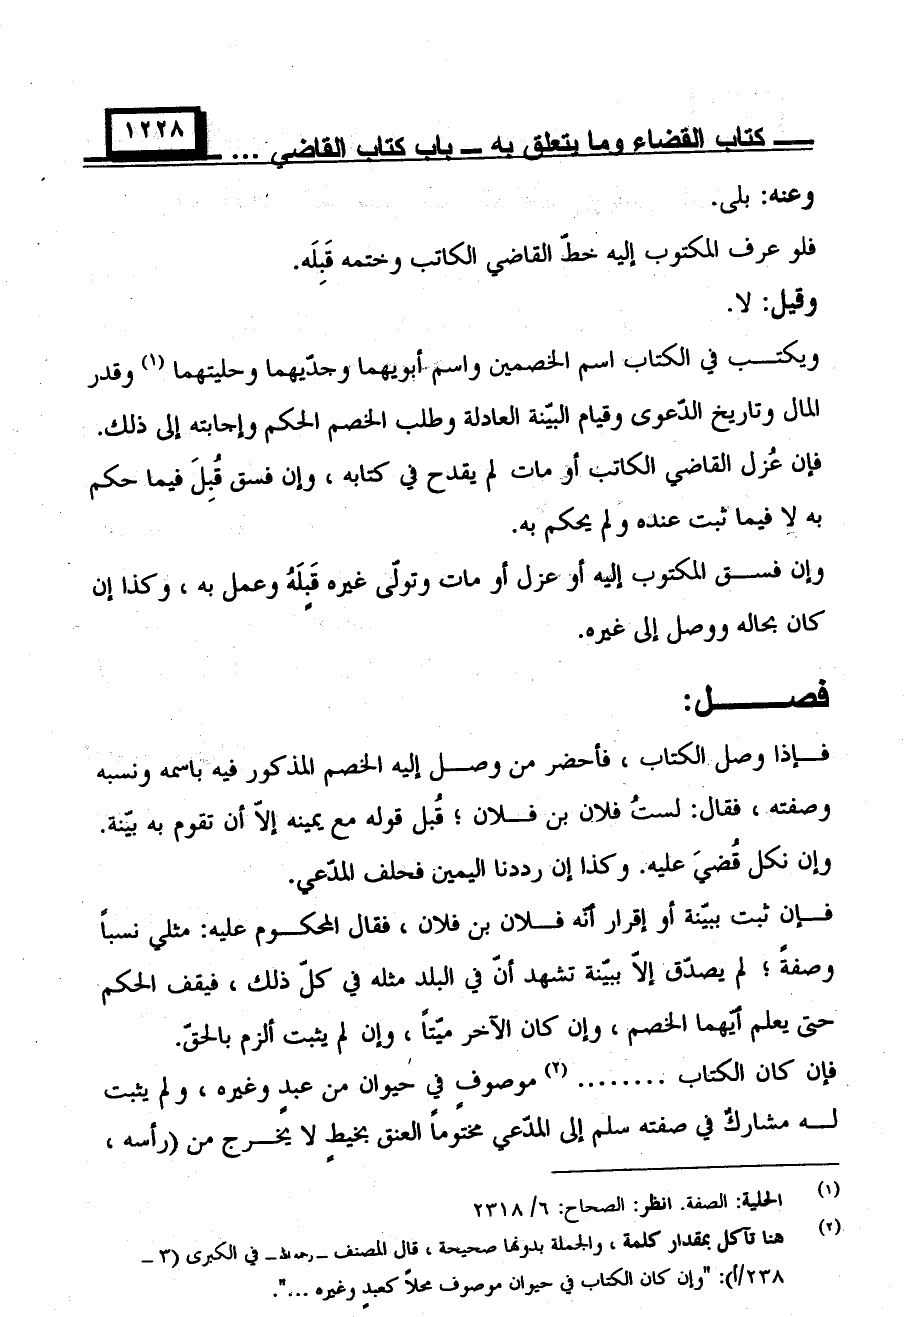 كتاب القضاء وما يتعلق به ـ باب كتاب القاضي ...
١٢٢٨
وعنه: بلى.
فلو عرف المكتوب إليه خطّ القاضي الكاتب وختمه قَبِلَه.
وقيل: لا.
ويكتب في الكتاب اسم الخصمين واسم أبويهما وجدّيهما وحليتهما (١) وقدر
المال وتاريخ الدّعوى وقيام البيّنة العادلة وطلب الخصم الحكم وإجابته إلى ذلك.
فإن عُزل القاضي الكاتب أو مات لم يقدح في كتابه ، وإن فسق قُبِلَ فيما حكم
به لا فيما ثبت عنده ولم يحكم به.
وإن فسق المكتوب إليه أو عزل أو مات وتولّى غيره قَبِلَهُ وعمل به ، وكذا إن
كان بحاله ووصل إلى غيره.
فصل:
فإذا وصل الكتاب ، فأحضر من وصل إليه الخصم المذكور فيه باسمه ونسبه
وصفته ، فقال: لستُ فلان بن فلان ؛ قُبل قوله مع يمينه إلاّ أن تقوم به بيّنة.
وإن نكل قُضيَ عليه. وكذا إن رددنا اليمين فحلف المدّعي.
فإن ثبت ببيّنة أو إقرار أنّه فلان بن فلان ، فقال المحكوم عليه: مثلي نسباً
وصفةً ؛ لم يصدّق إلاّ ببيّنة تشهد أنّ في البلد مثله في كلّ ذلك ، فيقف الحكم
حتى يعلم أيّهما الخصم ، وإن كان الآخر ميّتاً ، وإن لم يثبت ألزم بالحقّ.
فإن كان الكتاب ........ (٢) موصوفٍ في حيوان من عبدٍ وغيره ، ولم يثبت
له مشاركٌ في صفته سلم إلى المدّعي مختوماً العنق بخيطٍ لا يخرج من (رأسه ،
(١) الحلية: الصفة. انظر: الصحاح: ٦/ ٢٣١٨
(٢) هنا تآكل بمقدار كلمة ، والجملة بدونها صحيحة ، قال المصنف ـ رحمه الله ـ في الكبرى (٣ ـ
٢٣٨/أ): "وإن كان الكتاب في حيوان موصوف محلاً كعبدٍ وغيره ...".